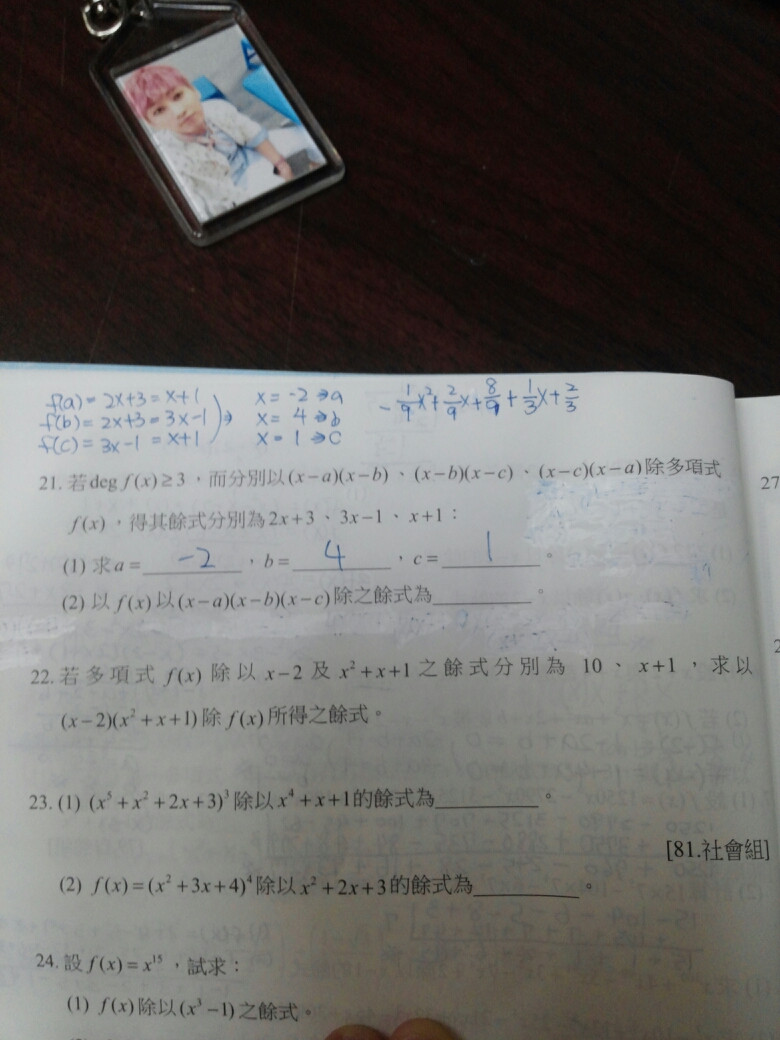 f(a) = 2x+3 = x+1 x = -2 ⇒ a - 1/9 x² + 2/9 x + 8/9 + 1/3 x + 2/3
f(b) = 2x+3 = 3x-1 ⇒ x = 4 ⇒ b
f(c) = 3x-1 = x+1 x = 1 ⇒ c
21. 若 deg f(x) ≥ 3,而分別以 (x-a)(x-b)、(x-b)(x-c)、(x-c)(x-a) 除多項式
f(x),得其餘式分別為 2x+3、3x-1、x+1:
(1) 求 a = -2 ,b = 4 ,c = 1 。
(2) 以 f(x) 以 (x-a)(x-b)(x-c) 除之餘式為________。
22. 若多項式 f(x) 除以 x-2 及 x²+x+1 之餘式分別為 10、x+1,求以
(x-2)(x²+x+1) 除 f(x) 所得之餘式。
23. (1) (x⁵+x²+2x+3)³ 除以 x⁴+x+1 的餘式為________。
[81.社會組]
(2) f(x) = (x²+3x+4)⁴ 除以 x²+2x+3 的餘式為________。
24. 設 f(x) = x¹⁵,試求:
(1) f(x) 除以 (x³-1) 之餘式。
27